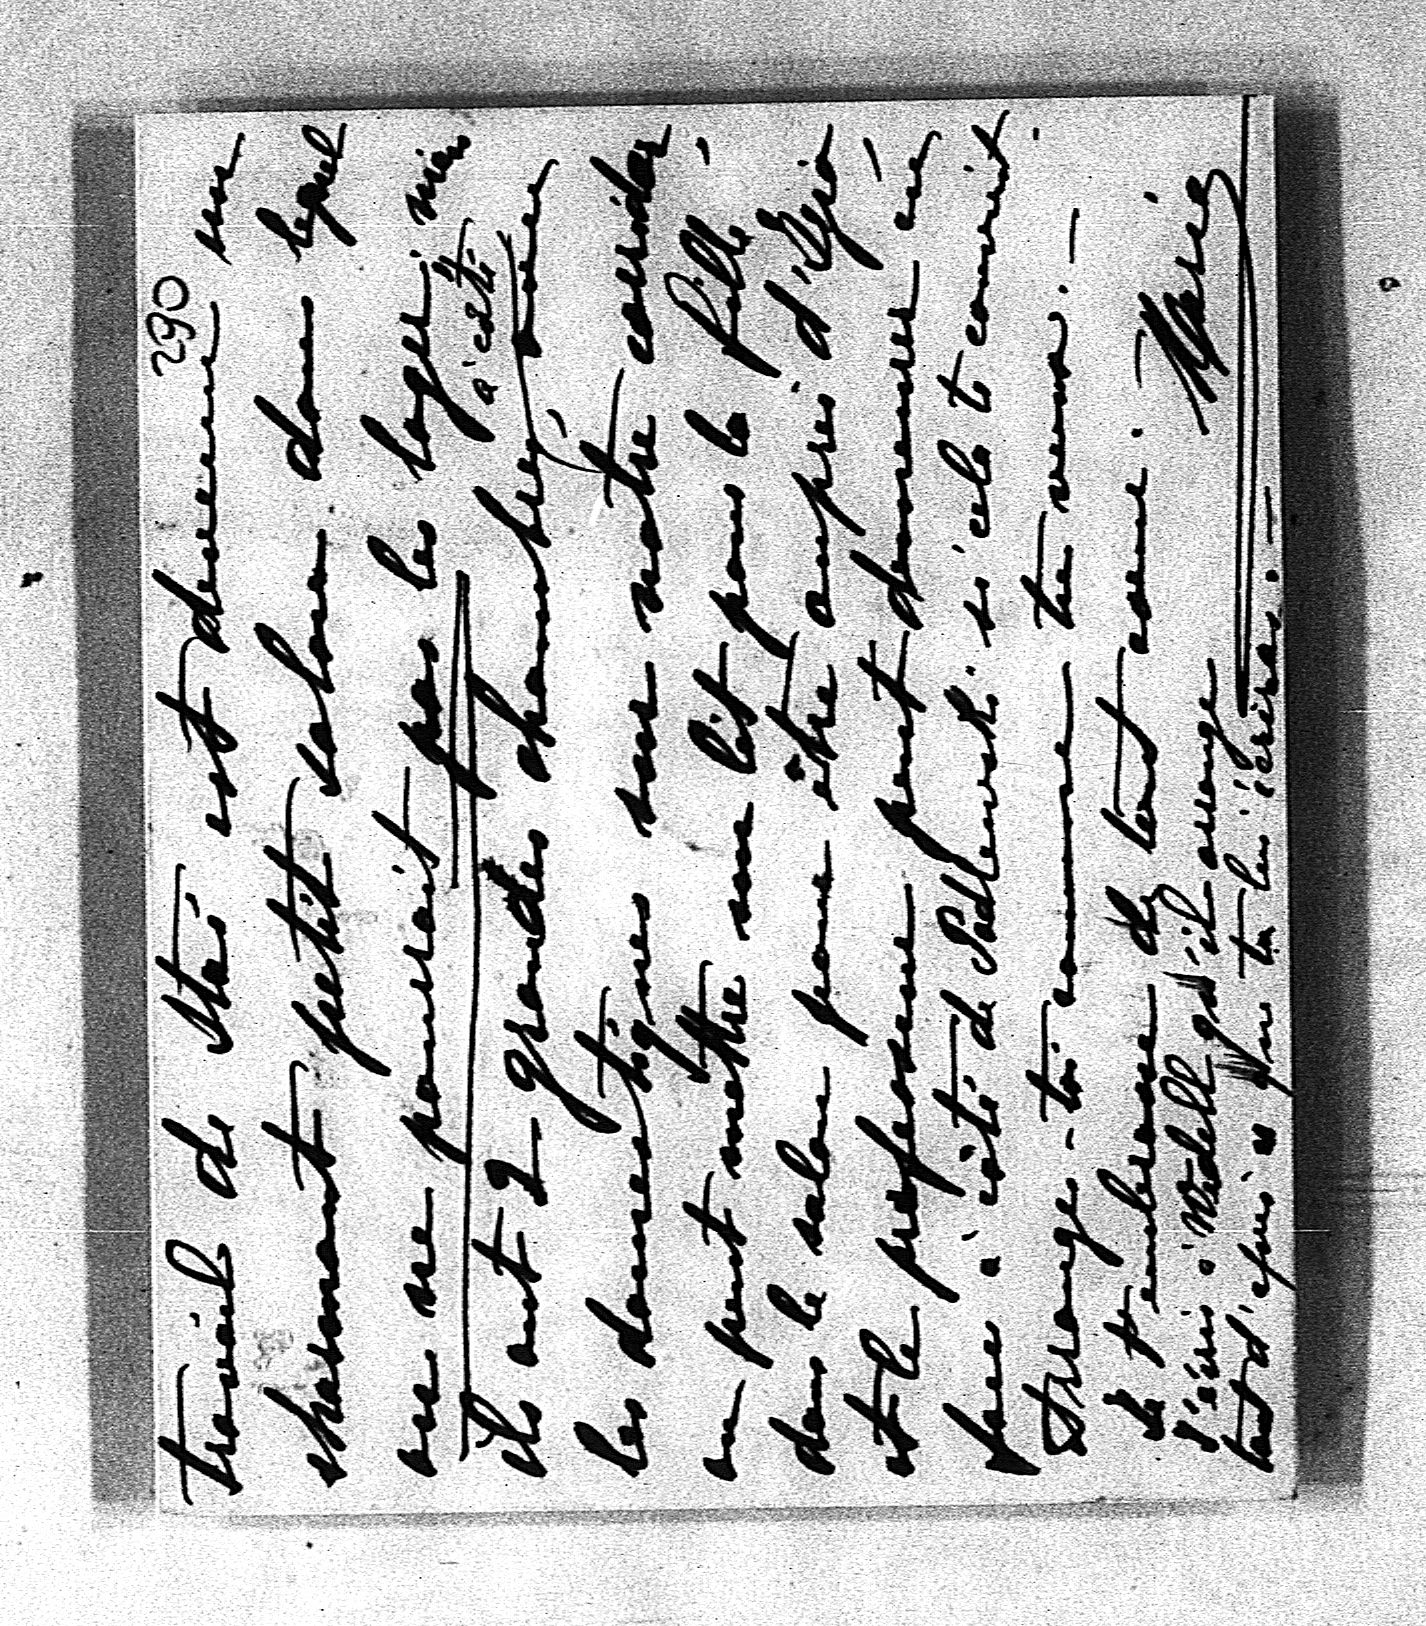 290
travail de Staś est devenu un
charmant petit salon dans lequel
on ne pourrait pas les loger, mais
à côté
ils ont 2 grandes chambres avec
les domestiques sur notre corridor,
on peut mettre un lit pour la fille
dans le salon pour être auprès d'elle
et le professeur peut demeurer en
face à côté de si cela te convient.
Arrange-toi comme tu veux. —
Je t'embrasse de tout cœur. Marie
J'écris à Wedell qu'il arrange
tout d'après ce que tu lui écriras. —